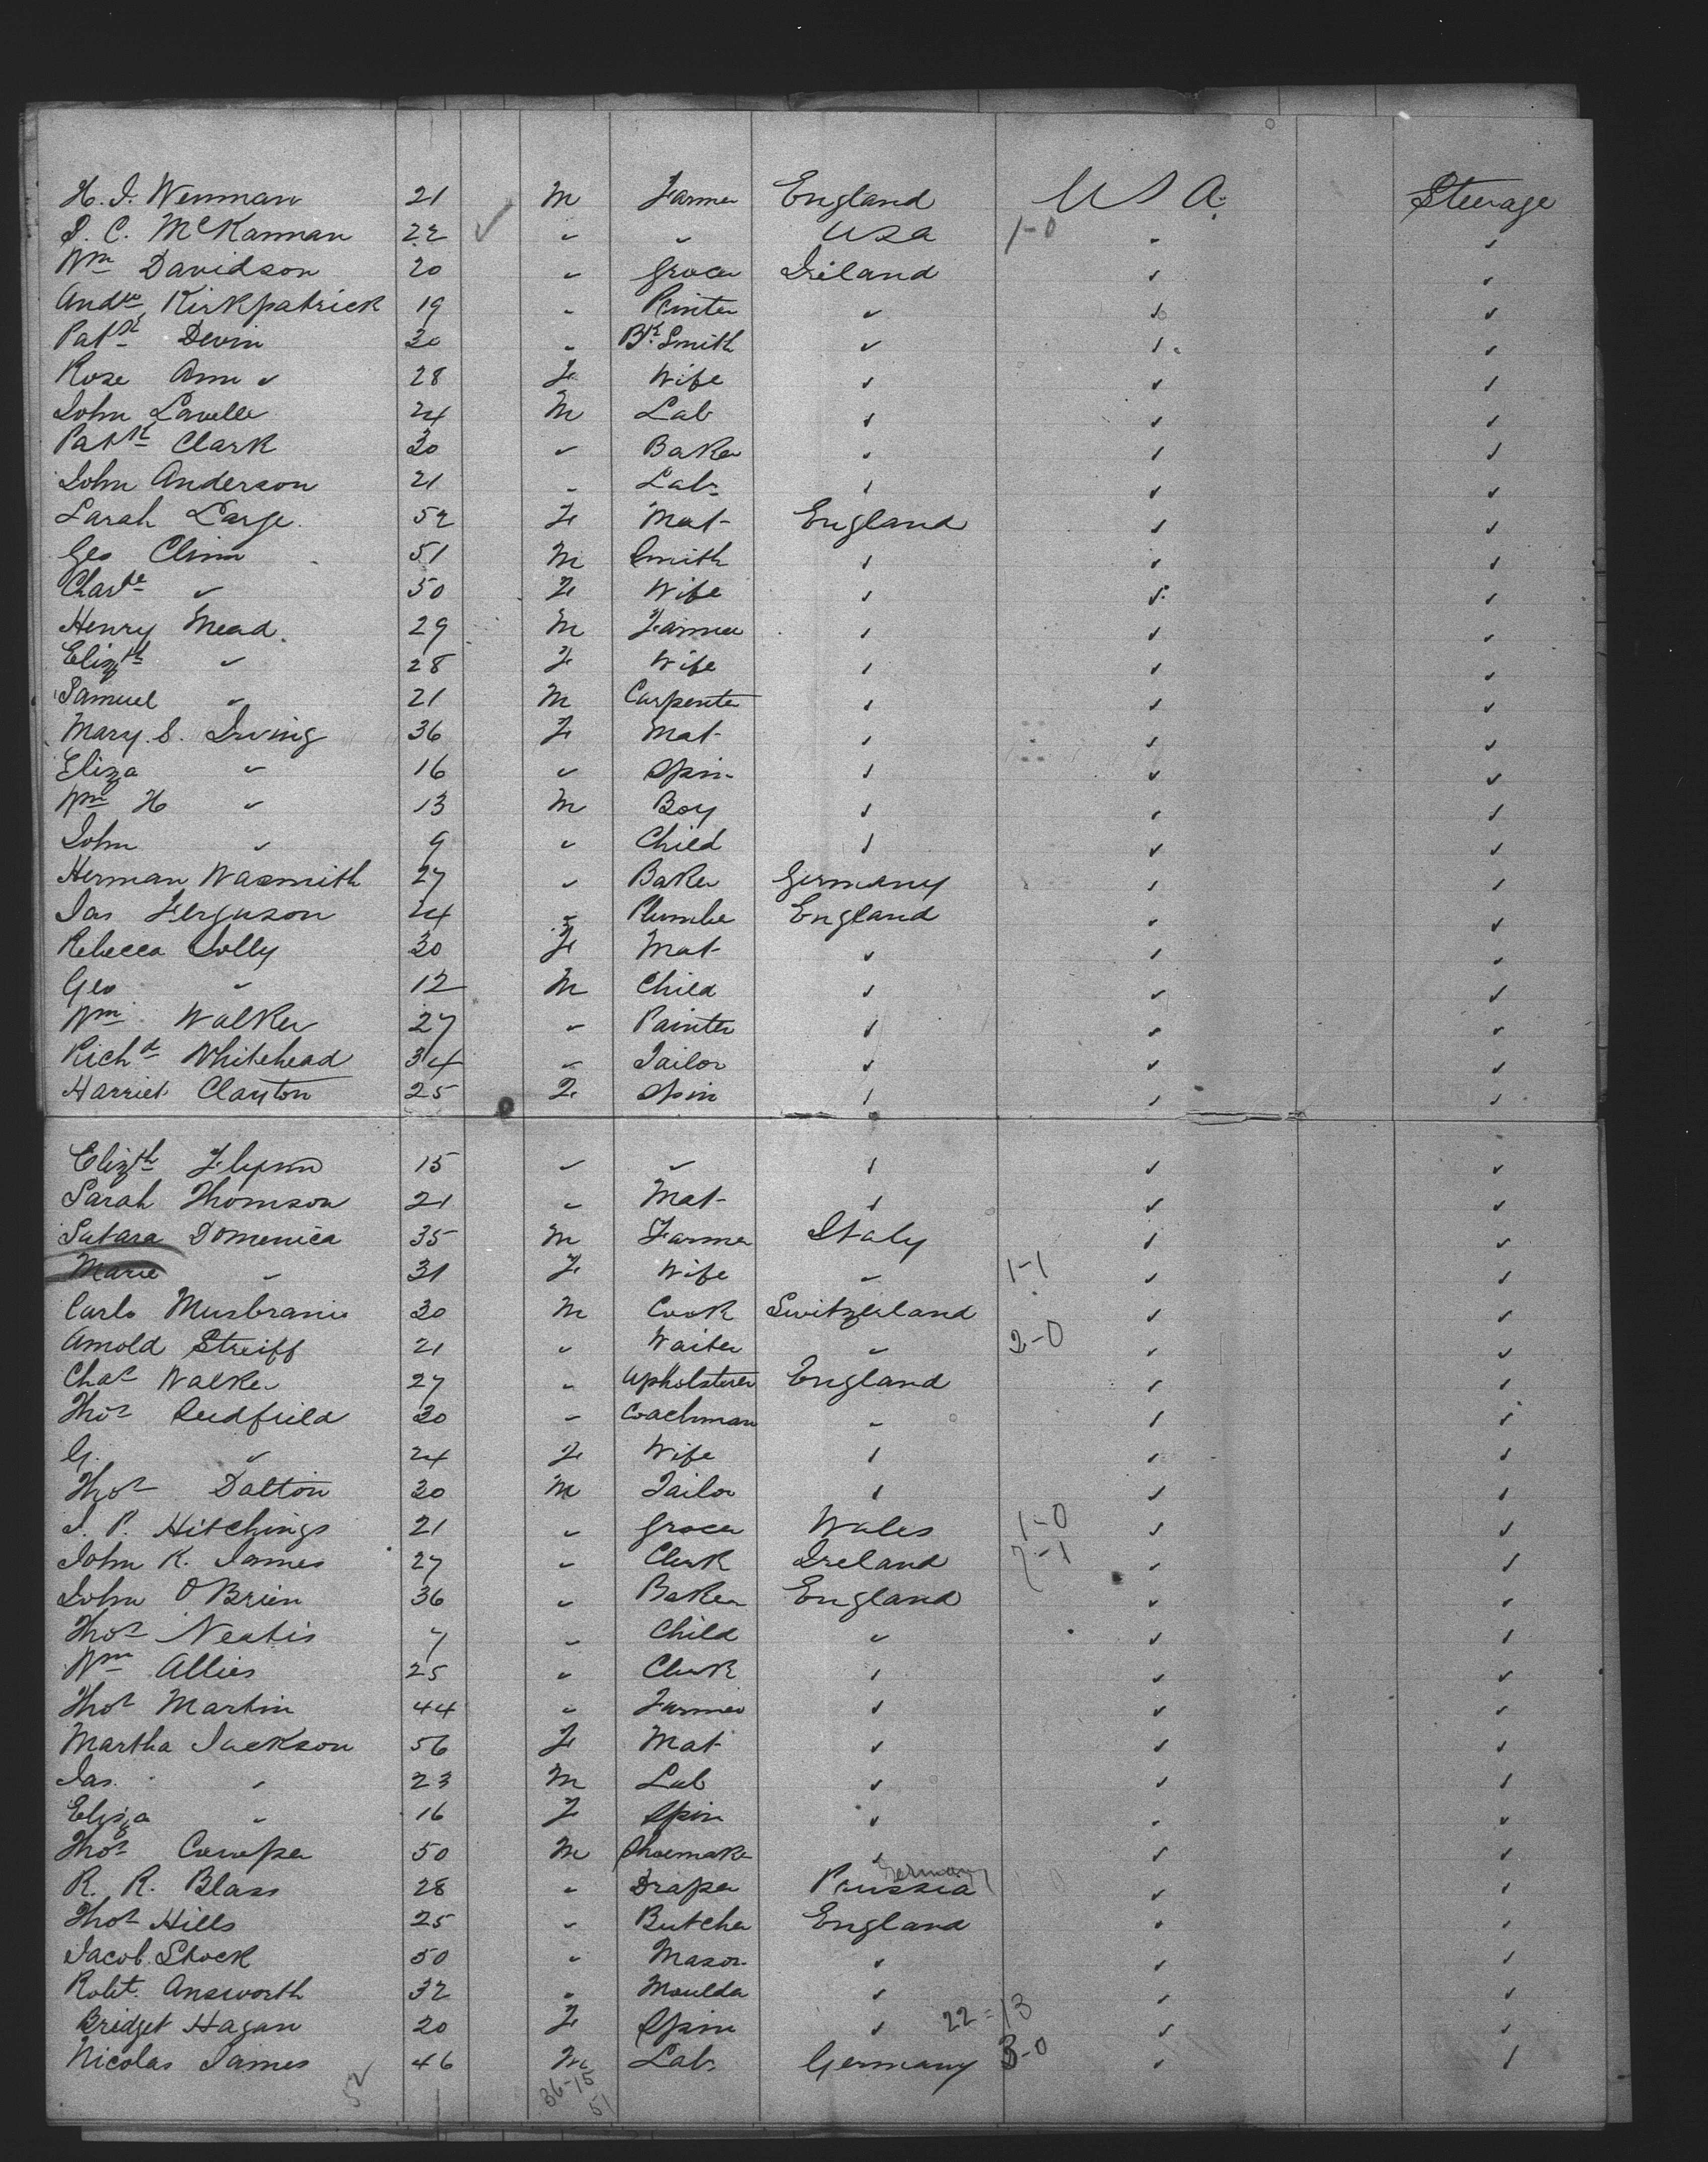 H. J. Wenman 21 M Farmer England U S A. Steerage
J. C. McKannan 22 ✓ " " USA 1-0 " "
Wm Davidson 20 " Grocer Ireland " "
Andw Kirkpatrick 19 " Printer " " "
Patk Devin 30 " Bk Smith " " "
Rose Ann " 28 F Wife " " "
John Lavelle 24 M Lab " " "
Patk Clark 30 " Baker " " "
John Anderson 21 " Labr " " "
Sarah Large 52 F Mat England " "
Geo Clinn 51 M Smith " " "
Charte " 50 F Wife " " "
Henry Mead 29 M Farmer " " "
Elizth " 28 F Wife " " "
Samuel " 21 M Carpenter " " "
Mary S. Irving 36 F Mat " " "
Eliza " 16 " Spin " " "
Wm H " 13 M Boy " " "
John " 9 " Child " " "
Herman Wasmith 27 " Baker Germany " "
Jas Ferguson 24 " Plumber England " "
Rebecca Jolly 30 F Mat " " "
Geo " 12 M Child " " "
Wm Walker 27 " Painter " " "
Richd Whitehead 34 " Tailor " " "
Harriet Clayton 25 F Spin " " "
Elizth Flynn 15 " " " " "
Sarah Thomson 21 " Mat " " "
Satara Domenica 35 M Farmer Italy " "
Marie " 31 F Wife " 1-1 " "
Carlo Musbranie 30 M Cook Switzerland " "
Arnold Streiff 21 " Waiter " 2-0 " "
Chas Walker 27 " Upholsterer England " "
Thos Seedfield 30 " Coachman " " "
G. " 24 F Wife " " "
Thos Dalton 30 M Tailor " " "
J. P. Hitchings 21 " Grocer Wales 1-0 " "
John K. James 27 " Clerk Ireland 7-1 " "
John O'Brien 36 " Baker England " "
Thos Neatis 7 " Child " " "
Wm Allies 25 " Clerk " " "
Thos Martin 44 " Farmer " " "
Martha Jackson 56 F Mat " " "
Jas. " 23 M Lab " " "
Eliza " 16 F Spin " " "
Thos Cowper 50 M Shoemaker " " "
Germany
R. R. Blass 28 " Draper Prussia " "
Thos Hills 25 " Butcher England " "
Jacob Shock 50 " Mason " " "
Robt. Answorth 32 " Moulder " " "
Bridget Hagan 20 F Spin " 22=13 " "
Nicolas James 46 M Labr Germany 3-0 " "
52 36-15
51